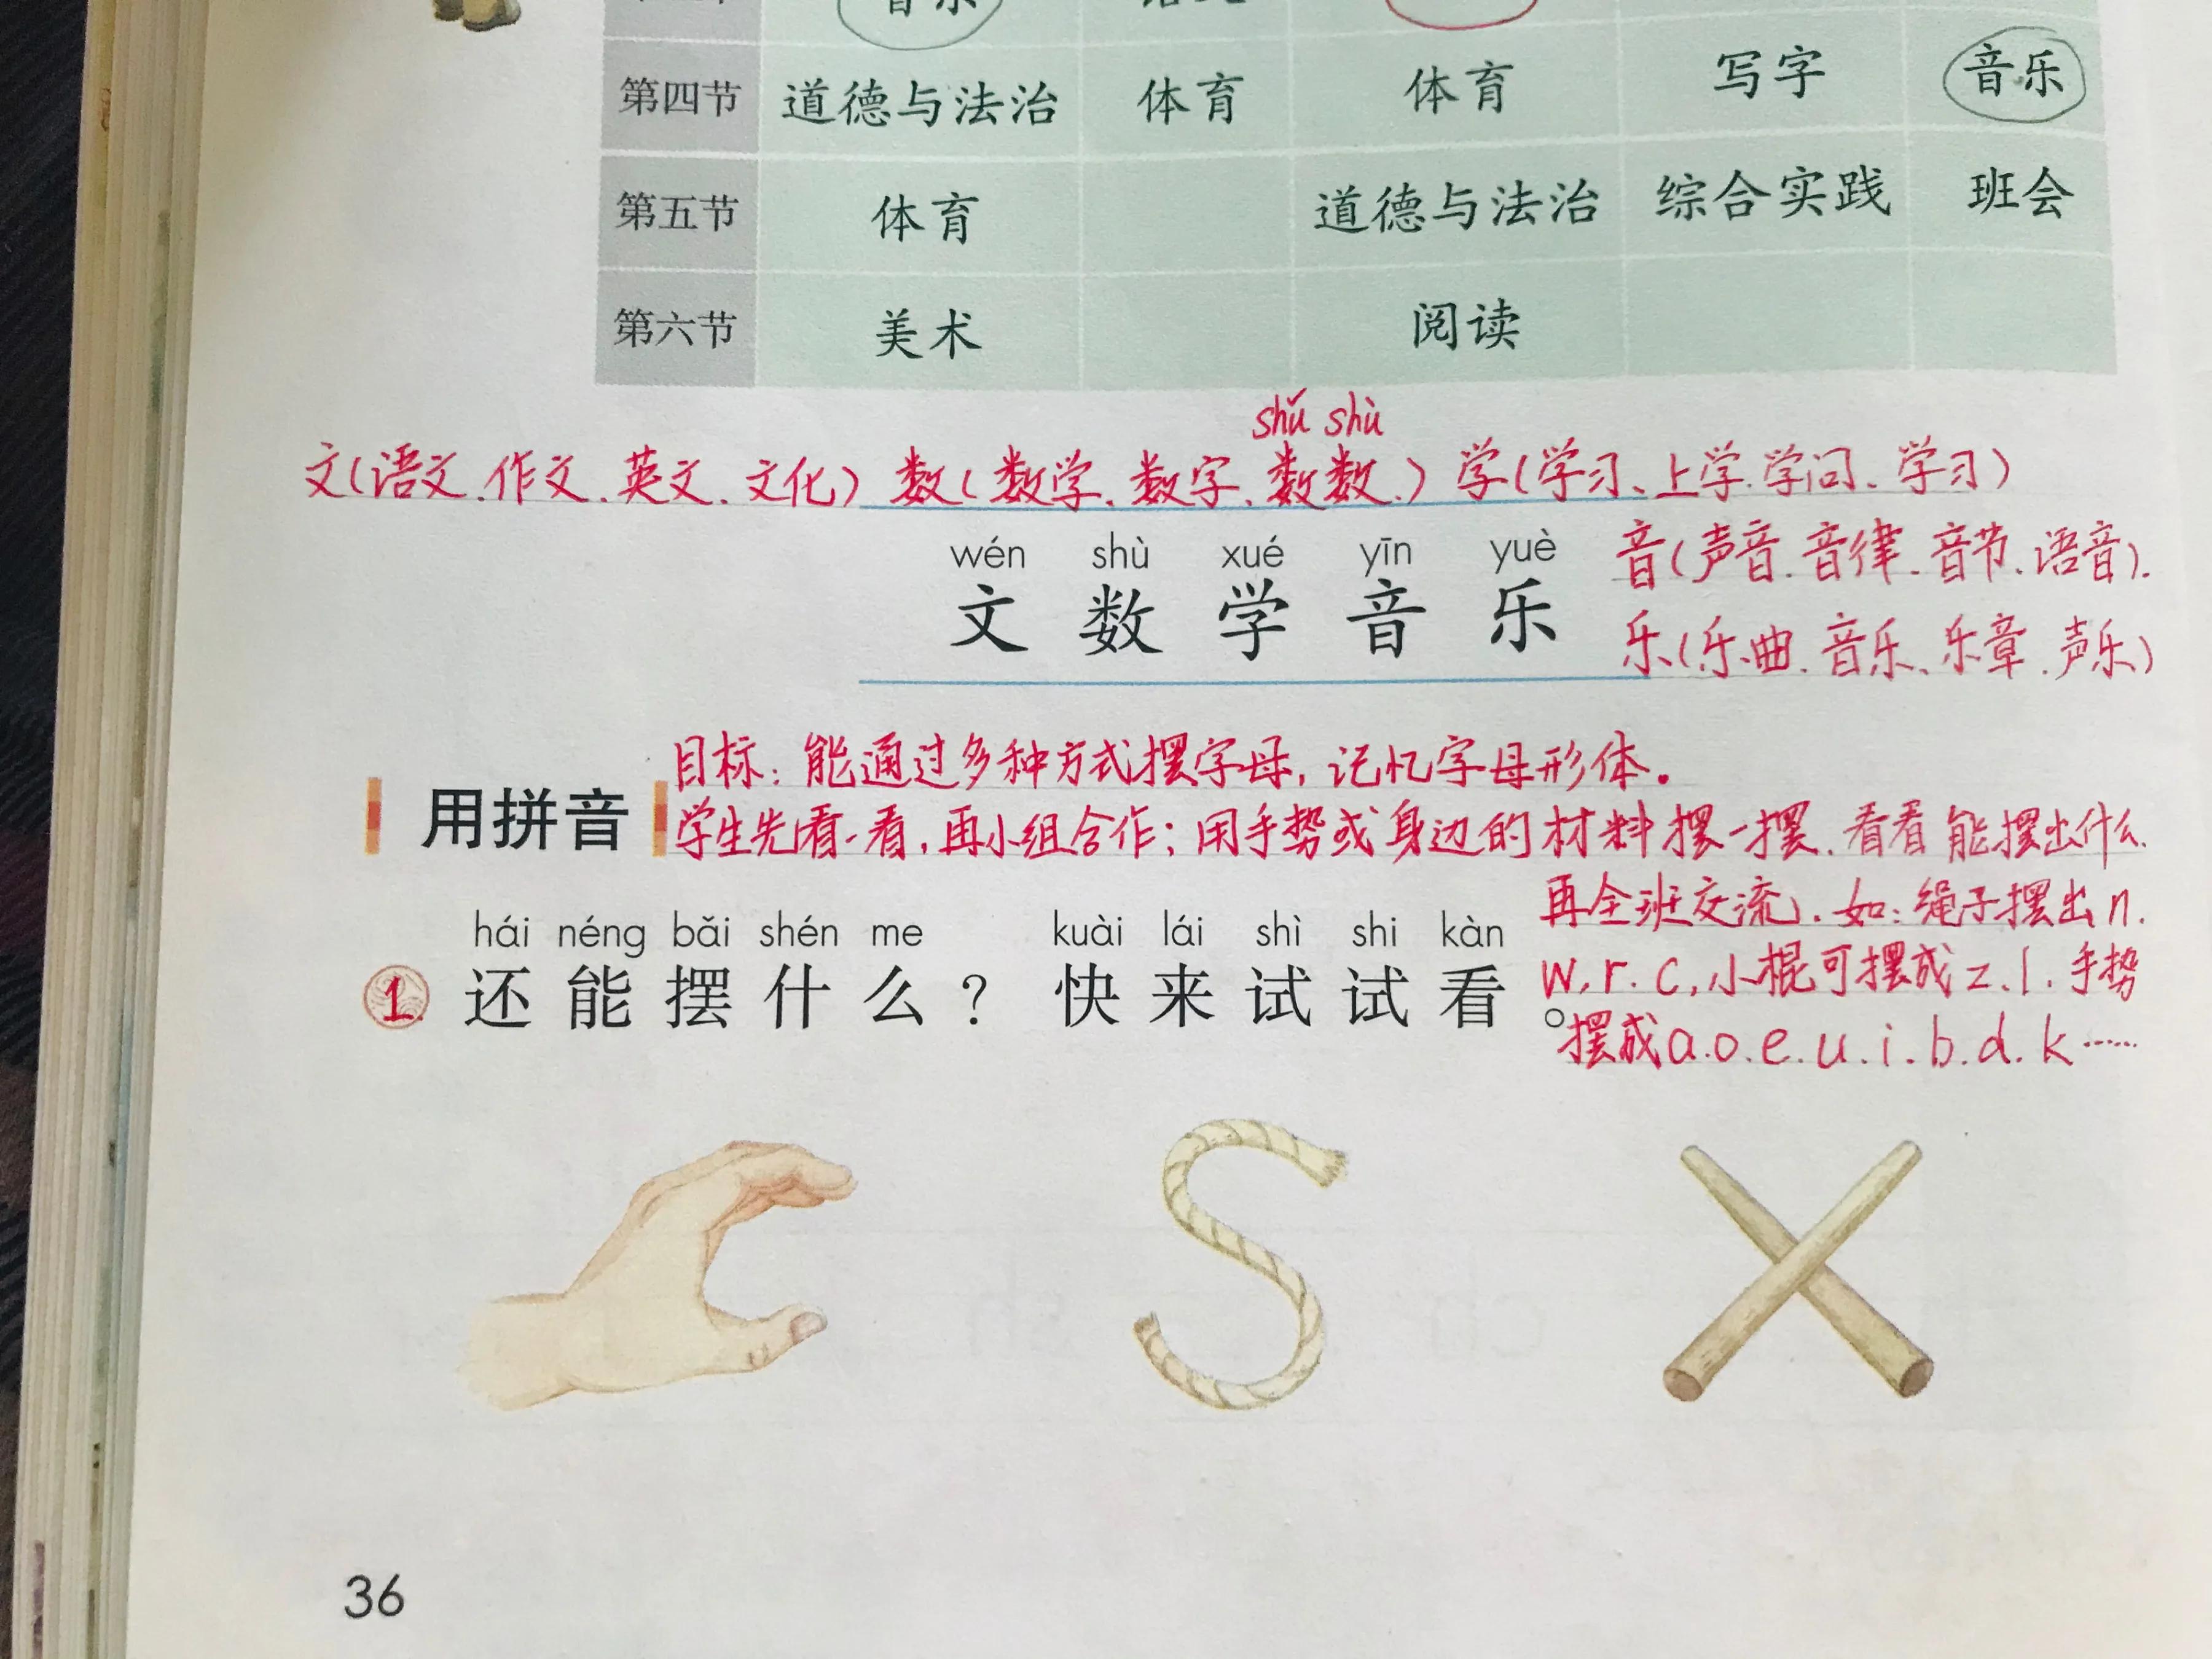 音乐
第四节 道德与法治 体育 体育 写字 音乐
第五节 体育 道德与法治 综合实践 班会
第六节 美术 阅读
shǔ shù
文(语文、作文、英文、文化) 数(数学、数字、数数、) 学(学习、上学、学问、学习)
wén shù xué yīn yuè
文 数 学 音 乐
音(声音、音律、音节、语音).
乐(乐曲、音乐、乐章、声乐)
目标:能通过多种方式摆字母,记忆字母形体。
用拼音
学生先看一看,再小组合作;用手势或身边的材料摆一摆.看看能摆出什么.
再全班交流).如:绳子摆出n.
w,r.c,小棍可摆成z.l.手势
摆成a.o.e.u.i.b.d.k……
hái néng bǎi shén me kuài lái shì shi kàn
1. 还能摆什么? 快来试试看。
36